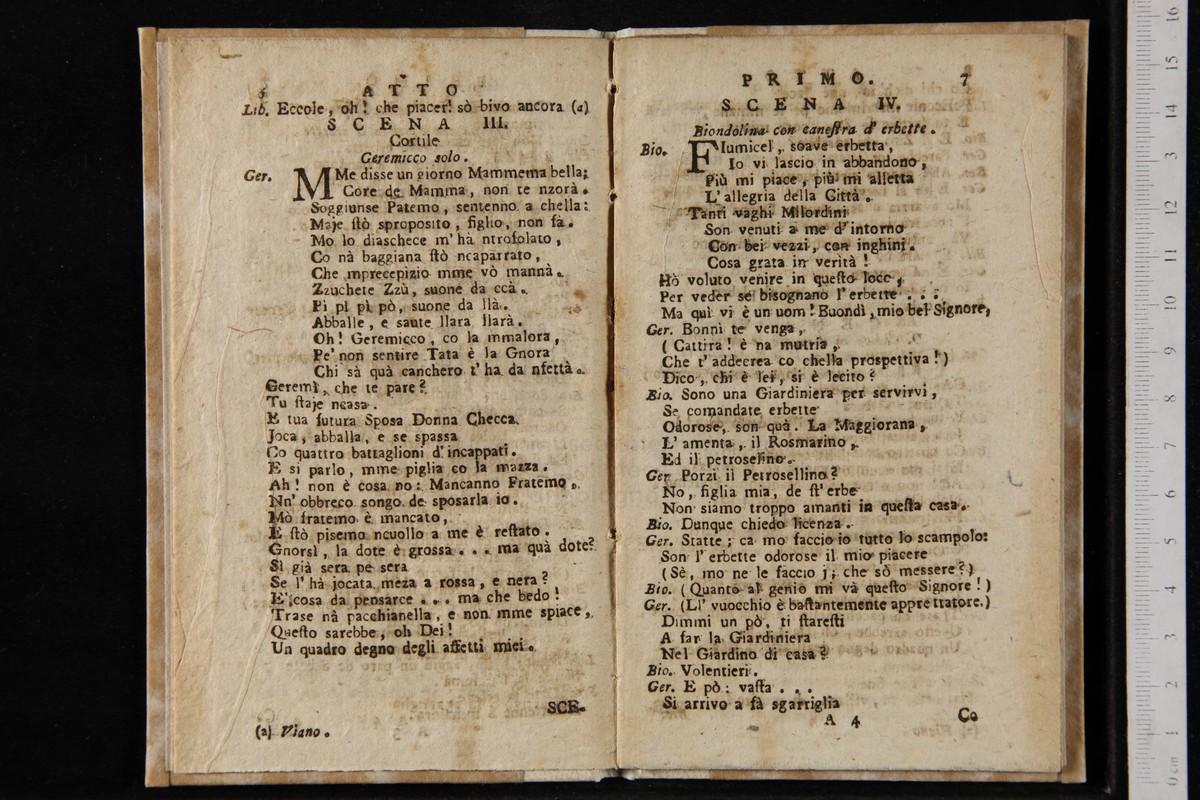 6
A T T O
Lib. Eccole, oh! che piacer! sò bivo ancora (a)
S C E N A III.
Cortile
Geremicco solo.
Ger. MMe disse un giorno Mammema bella;
Core de Mamma, non te nzorà.
Soggiunse Patemo, sentenno a chella:
Maje ſtò sproposito, figlio, non fà.
Mo lo diaschece m' hà ntrofolato,
Co nà baggiana ſtò ncaparrato,
Che mprecepizio mme vò mannà.
Zzuchete Zzù, suone da ccà.
Pi pi pì pò, suone da llà.
Abballe, e saute llara llarà.
Oh! Geremicco, co la mmalora,
Pe' non sentire Tata è la Gnora
Chi sà quà canchero t' ha da nfettà.
Geremì, che te pare?
Tu ſtaje ncasa.
E tua futura Sposa Donna Checca
Joca, abballa, e se spassa
Co quattro battaglioni d' incappati.
E si parlo, mme piglia co la mazza.
Ah! non è cosa no: Mancanno Fratemo,
Nn' obbreco songo de sposarla io.
Mò fratemo è mancato,
E ſtò pisemo ncuollo a me è reſtato.
Gnorsì, la dote è grossa . . . ma quà dote?
Sì già sera pe sera
Se l' hà jocata meza a rossa, e nera?
E' cosa da pensarce . . . ma che bedo!
Trase nà pacchianella, e non mme spiace,
Queſto sarebbe, oh Dei!
Un quadro degno degli affetti miei.
SCE-
(a) Viano.
P R I M O. 7
S C E N A IV.
Biondolina con caneſtra d' erbette.
Bio. FIumicel, soave erbetta,
Io vi lascio in abbandono,
Più mi piace, più mi alletta
L' allegria della Città.
Tanti vaghi Milordini
Son venuti a me d' intorno
Con bei vezzi, con inghini.
Cosa grata in verità!
Hò voluto venire in queſto loco,
Per veder se bisognano l' erbette . . .
Ma quì vi è un uom! Buondì, mio bel Signore,
Ger. Bonnì te venga,
( Cattira! è na mutria,
Che t' addecrea co chella prospettiva!)
Dico, chi è lei, si è lecito?
Bio. Sono una Giardiniera per servirvi,
Se comandate erbette
Odorose, son quà. La Maggiorana,
L' amenta, il Rosmarino,
Ed il petroselino.
Ger. Porzì il Petrosellino?
No, figlia mia, de ſt' erbe
Non siamo troppo amanti in queſta casa.
Bio. Dunque chiedo licenza.
Ger. Statte; ca mo faccio io tutto lo scampolo:
Son l' erbette odorose il mio piacere
(Sè, mo ne le faccio j; che sò messere?)
Bio. (Quanto al genio mi và queſto Signore!)
Ger. (Ll' vuocchio è baſtantemente apprettatore.)
Dimmi un pò, ti ſtareſti
A far la Giardiniera
Nel Giardino di casa?
Bio. Volentieri.
Ger. E pò: vaſta . . .
Si arrivo a fà sgarriglia
A 4 Co